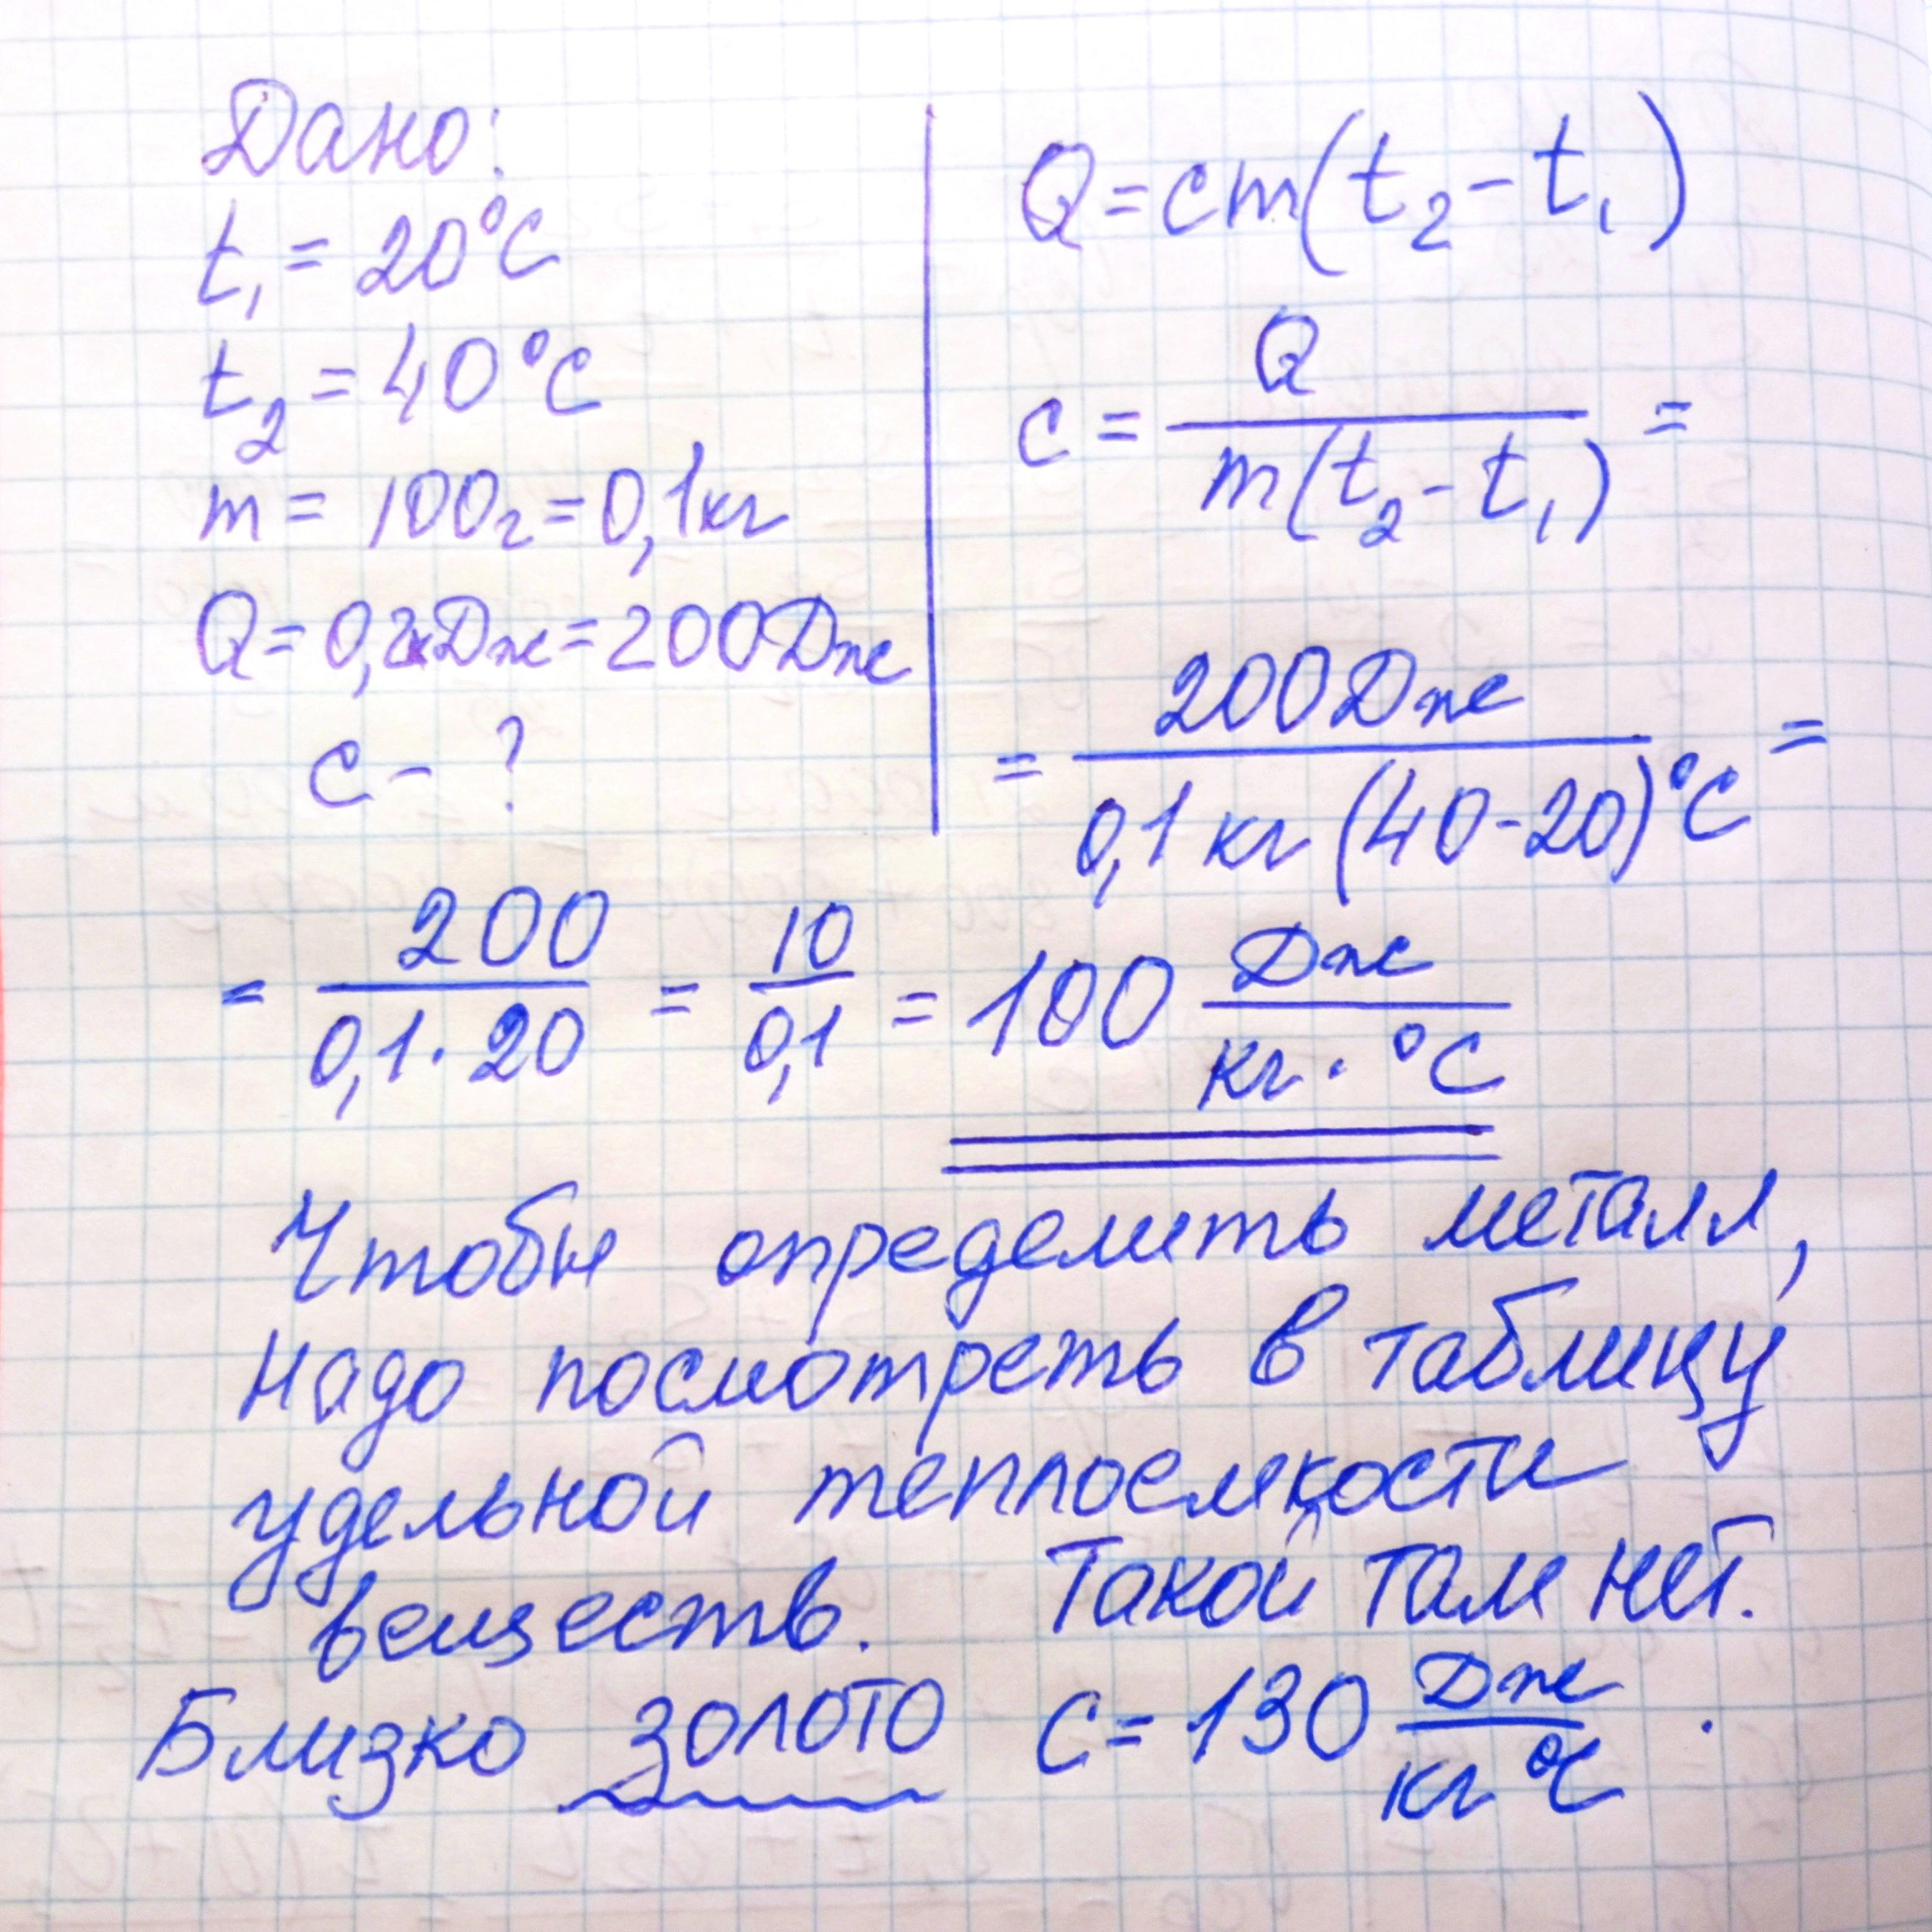 Дано:
t₁ = 20°C
t₂ = 40°C
m = 100г = 0,1кг
Q = 0,2кДж = 200Дж
c - ?
Q = cm(t₂ - t₁)
c = Q / m(t₂ - t₁) =
= 200Дж / 0,1 кг (40-20)°C =
= 200 / 0,1 · 20 = 10 / 0,1 = 100 Дж / кг · °C
Чтобы определить металл,
надо посмотреть в таблицу
удельной теплоемкости
веществ. Такой там нет.
Близко золото c = 130 Дж / кг °C .